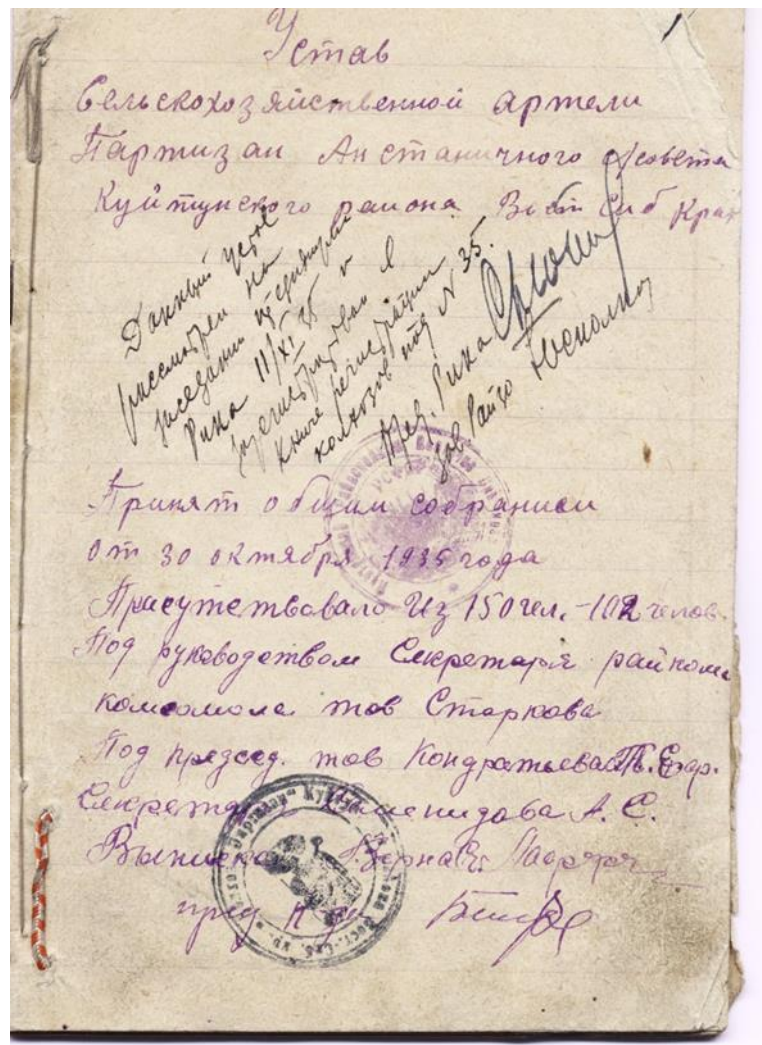 1
Устав
Сельскохозяйственной артели
Партизан Анстаничного с/совета
Куйтунского района Вост Сиб Края
Данный устав
рассмотрен на
заседании президиума
Рика 11/XI 35 и
зарегистрирован в
книге регистрации
колхозов под N 35.
Пред. Рика
Зав Райзо
Принят общим собранием
от 30 октября 1935 года
Присутствовало Из 150 чел. - 102 челов.
Под руководством Секретаря райкома
комсомола тов Старкова
Под председ. тов Кондратьева
Секретарь А. С.
Выписка Верна